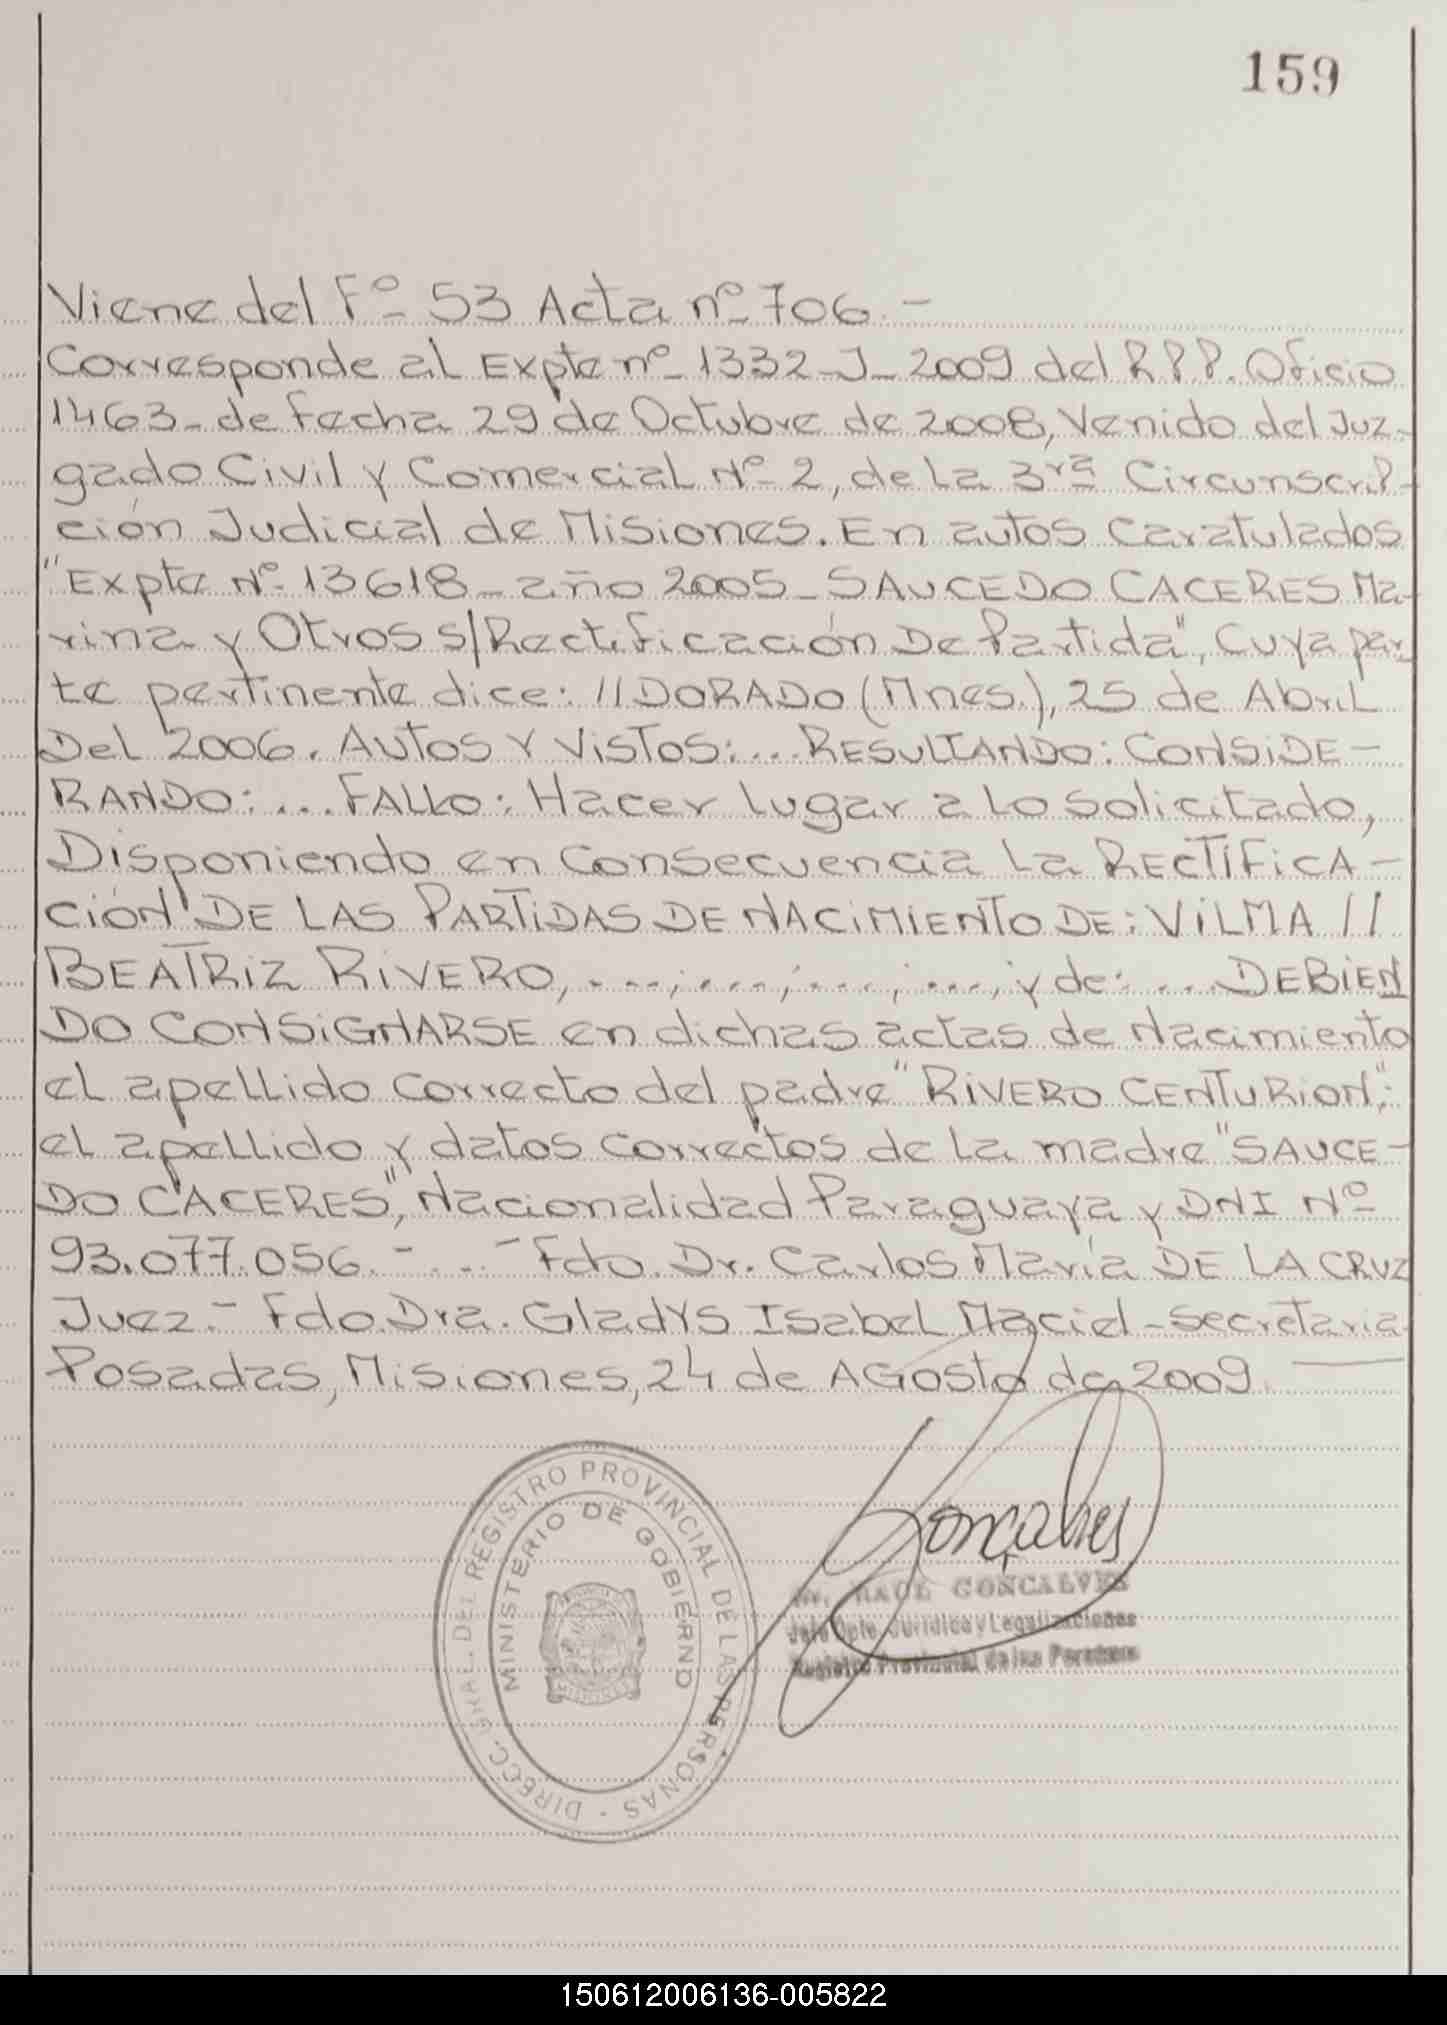 159
Viene del Fº 53 Acta nº 706.-
Corresponde al Expte nº 1332-J-2009 del R.P.P. Oficio
1463- de Fecha 29 de Octubre de 2008, Venido del Juz-
gado Civil y Comercial Nº 2, de la 3ra Circunscrip-
ción Judicial de Misiones. En autos Caratulados
"Expte Nº 13618-año 2005-SAUCEDO CACERES Ma-
rina y Otros s/Rectificación De Partida", Cuya par-
te pertinente dice: //DORADO (Mnes.), 25 de Abril
Del 2006. Autos y Vistos:... RESULTANDO: CONSIDE-
RANDO:... FALLO: Hacer lugar a lo solicitado,
Disponiendo en Consecuencia la RECTIFICA-
CIÓN DE LAS PARTIDAS DE NACIMIENTO DE: VILMA //
BEATRIZ RIVERO, ...;...;...;..., y de:... DEBIEN
DO CONSIGNARSE en dichas actas de Nacimiento
el apellido correcto del padre "RIVERO CENTURION";
el apellido y datos correctos de la madre "SAUCE-
DO CACERES", Nacionalidad Paraguaya y DNI Nº
93.077.056.- ... - Fdo. Dr. Carlos María DE LA CRUZ
Juez.- Fdo. Dra. Gladys Isabel Maciel - Secretaria
Posadas, Misiones, 24 de Agosto de 2009.
DIRECC. GRAL. DEL REGISTRO PROVINCIAL DE LAS PERSONAS -
MINISTERIO DE GOBIERNO
MISIONES
Gonçalves
Dr. RAUL GONCALVES
Jefe Dpto. Jurídico y Legalizaciones
Registro Provincial de las Personas
150612006136-005822